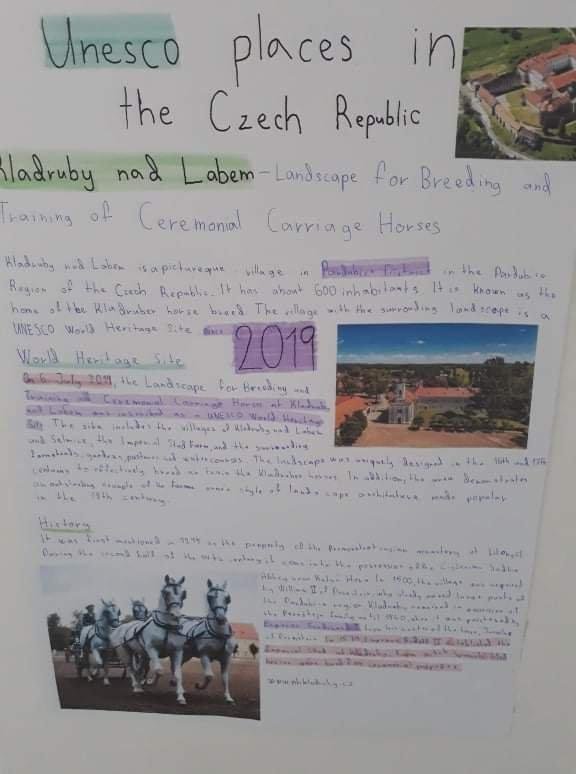 Unesco places in
the Czech Republic
Kladruby nad Labem - Landscape for Breeding and
Training of Ceremonial Carriage Horses
Kladruby nad Labem is a pictureque village in Pardubice District in the Pardubice
Region of the Czech Republic. It has about 600 inhabitants. It is known as the
home of the Kladruber horse breed. The village with the surronding landscape is a
UNESCO World Heritage Site since 2019
World Heritage Site
On 6 July 2019, the Landscape for Breeding and
Training of Ceremonial Carriage Horses at Kladruby
nad Labem was inscribed as a UNESCO World Heritage
Site. The site includes the villages of Kladruby nad Labem
and Selmice, the Imperial Stud Farm, and the surrounding
farmlands, gardens, pastures and watercourses. The landscape was uniquely designed in the 16th and 17th
centuries to effectively breed the Kladruber horses. In addition, the area demonstrates
an outstanding example of the style of landscape architecture made popular
in the 18th century.
History
It was first mentioned in as the property of the monastery at
During the second half of the 14th century it came into the possession of the
Abbey near In 1500, the village was acquired
by William II of who already owned large parts of
the Pardubice region Kladruby remained in
the family until 1560, when it was purchased by
Emperor
In 1579 Emperor Rudolf II established the
Imperial stud at Kladruby, from which
horses were bred for ceremonial purposes.
www.nhkladruby.cz